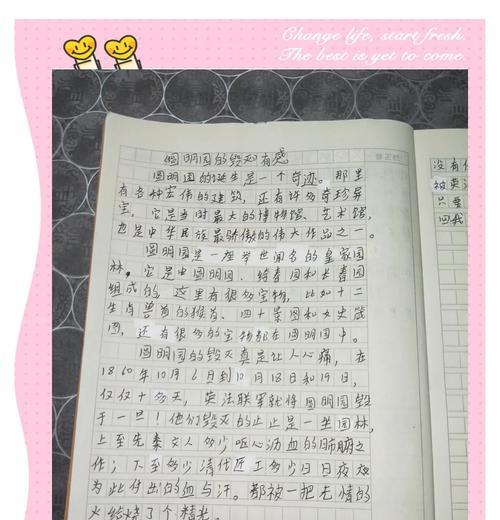 Change life, start fresh.
The best is yet to come.
圆明园的毁灭有感
圆明园的诞生是一个奇迹。那里
有各种宏伟的建筑，还有许多奇珍异
宝，它是当时最大的博物馆、艺术馆，
也是中华民族最骄傲的伟大作品之一。
圆明园是一座举世闻名的皇家园
林，它是由圆明园、绮春园和长春园
组成的。这里有很多宝物，比如十二
生肖兽首的猴首、四十景图和女史箴
图，还有很多的宝物都在圆明园中。
圆明园的毁灭真是让人心痛，在
1860年10月6日到10月18日和19日，
仅仅十多天，英法联军就将圆明园毁
于一旦！他们毁灭的止止是一坐园林，
上至先秦文人多少呕心沥血的肺腑之
作；下至多少清代匠工多少日日夜夜
为此付出的血与汗。都被一把无情的
火给烧了个精光。
没有
被英
只要
回我